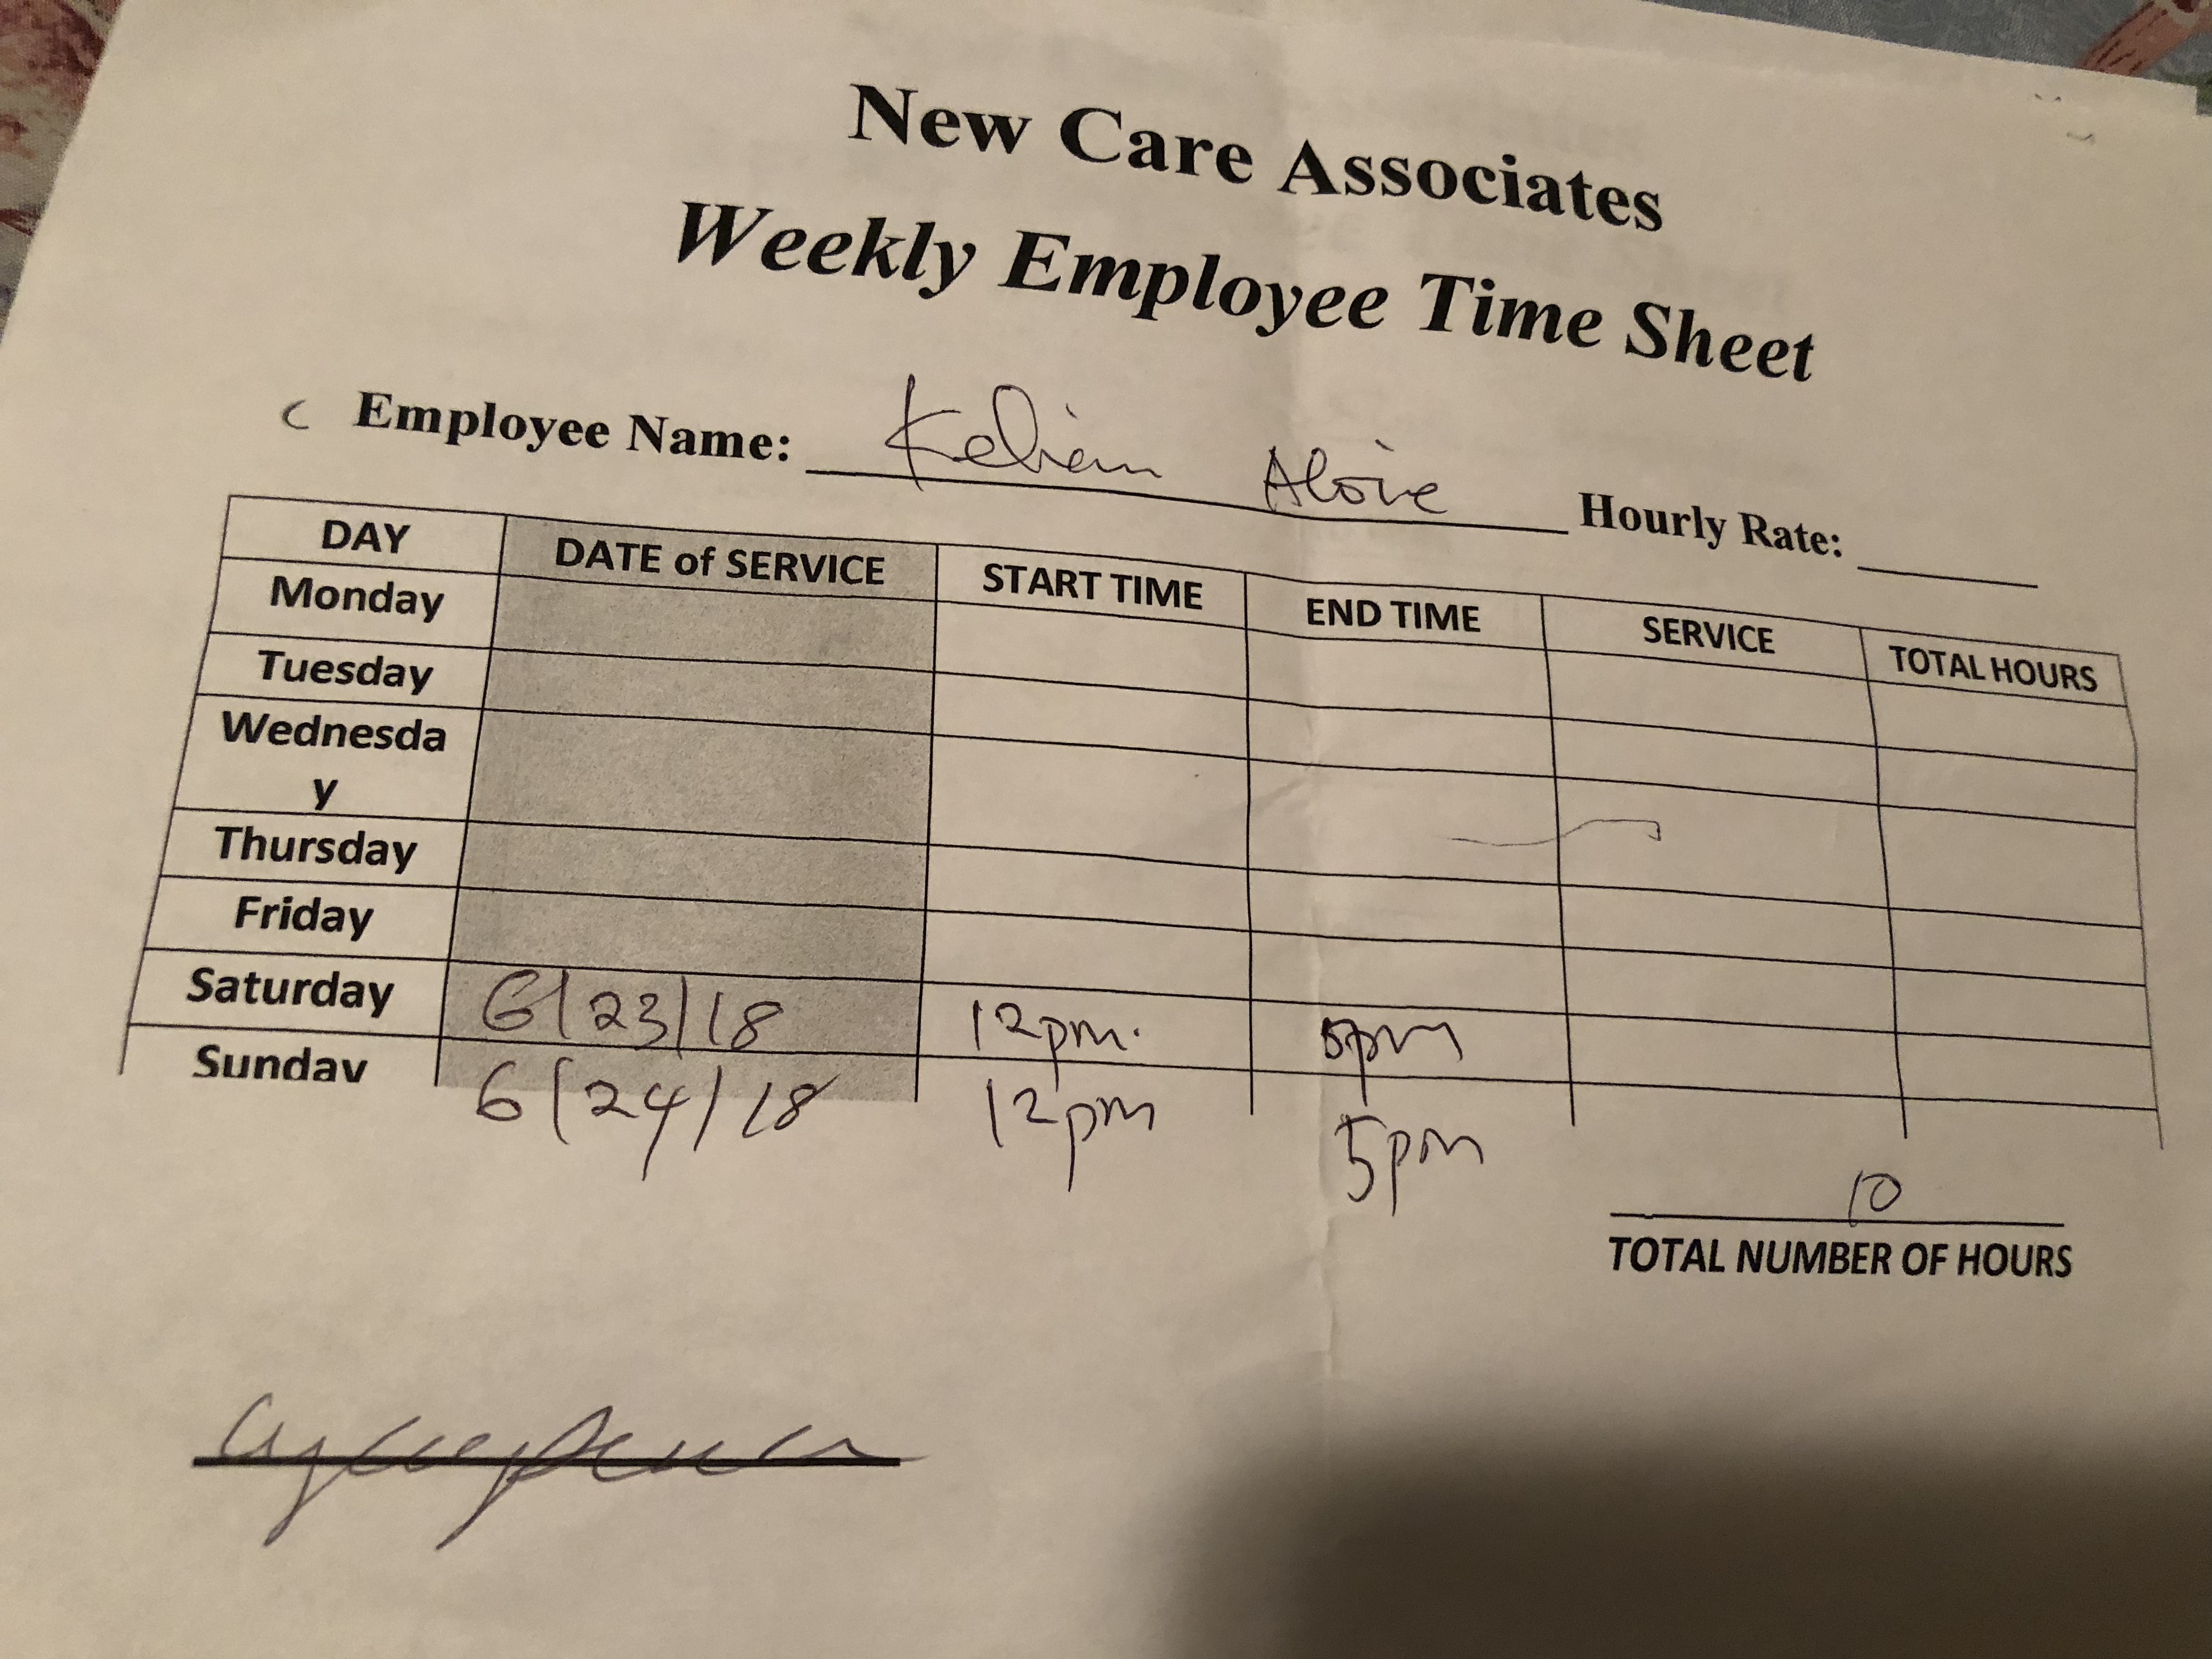 New Care Associates
Weekly Employee Time Sheet
Employee Name: Hourly Rate:
DAY DATE of SERVICE START TIME END TIME SERVICE TOTAL HOURS
Monday
Tuesday
Wednesda
y
Thursday
Friday
Saturday 6/23/18 12pm. 5pm
Sunday 6/24/18 12pm 5pm
10
TOTAL NUMBER OF HOURS